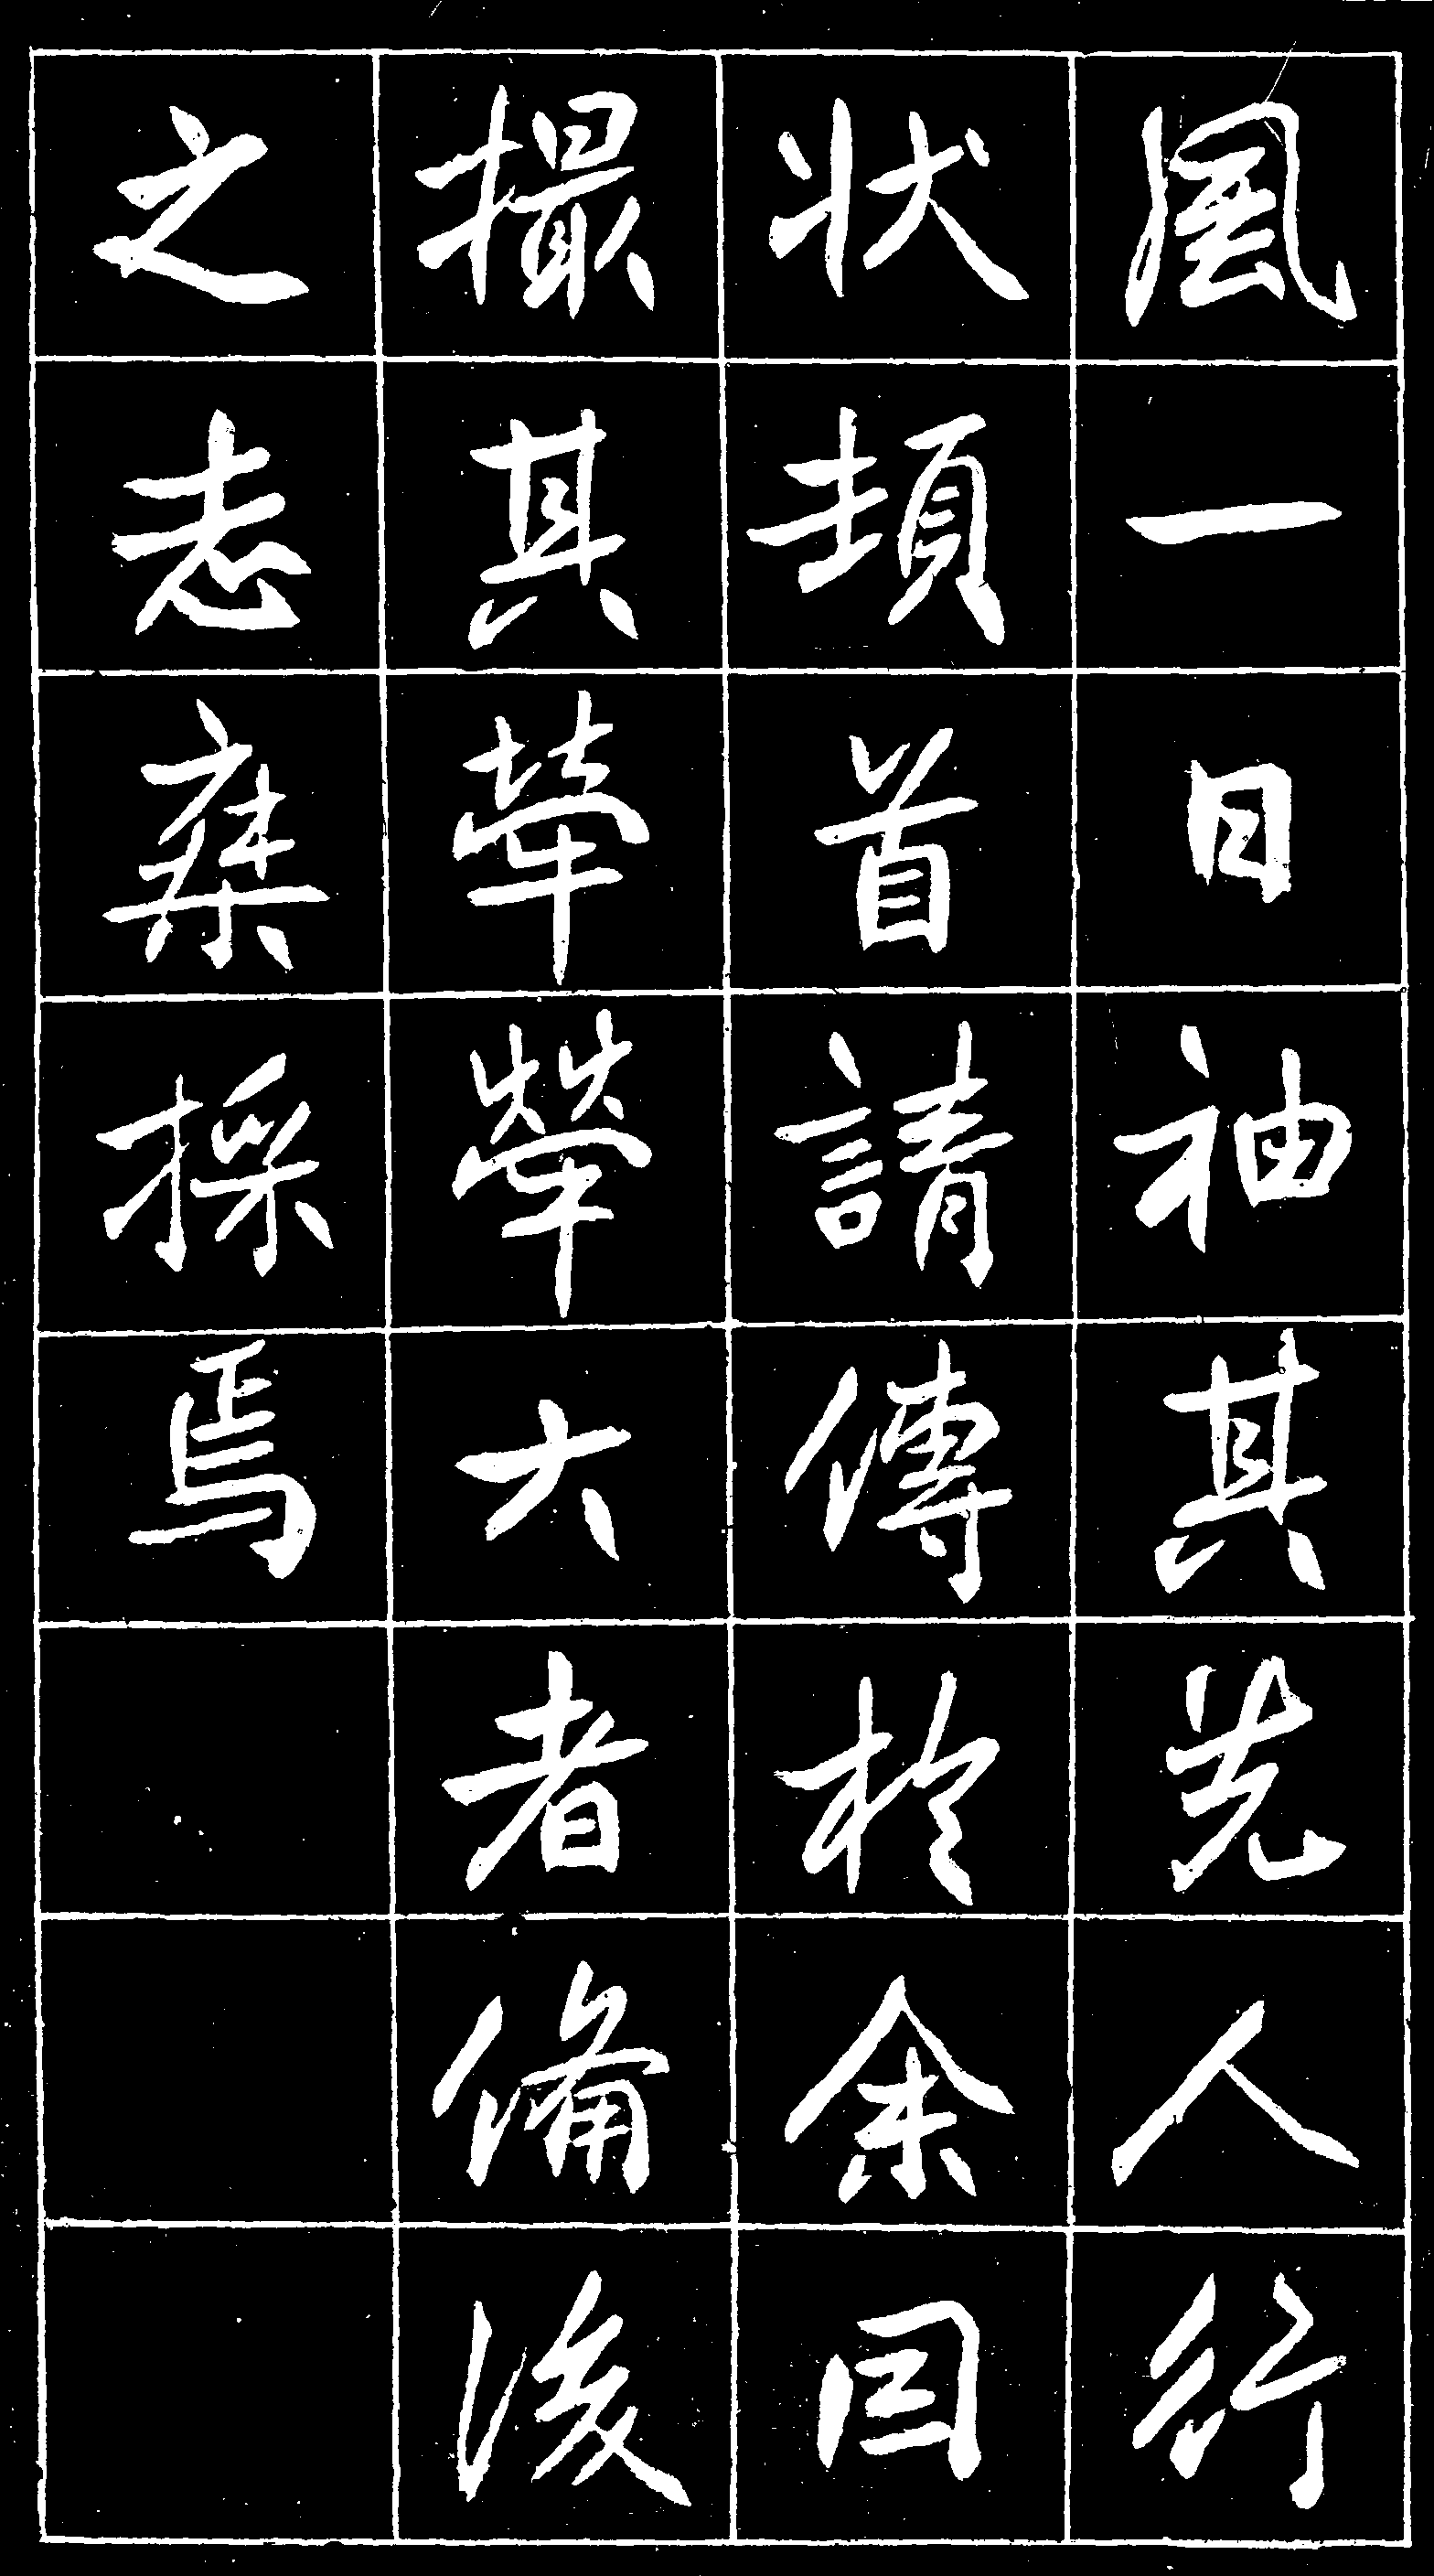 風一日袖其先人行
狀頓首請傳於余因
撮其犖犖大者備後
之志乘採焉